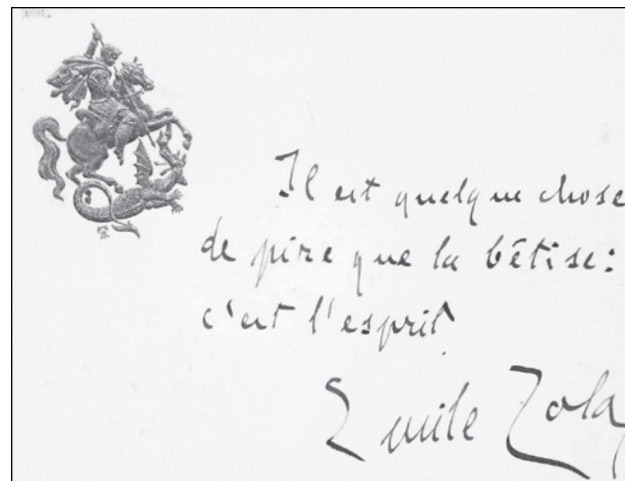 Il est quelque chose
de pire que la bêtise:
c'est l'esprit
Emile Zola